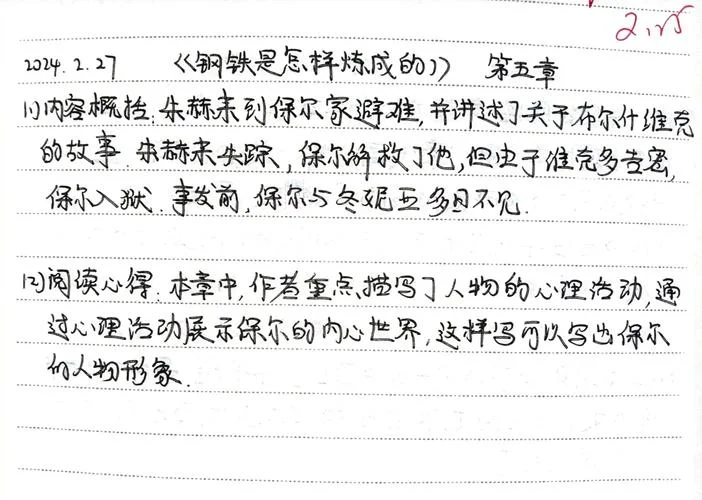 2.25
2024.2.27 《钢铁是怎样炼成的》 第五章
(1)内容概括.朱赫来到保尔家避难,并讲述了关于布尔什维克
的故事.朱赫来失踪,保尔解救了他,但由于维克多告密,
保尔入狱.事发前,保尔与冬妮亚多日不见.
(2)阅读心得.本章中,作者重点描写了人物的心理活动,通
过心理活动展示保尔的内心世界,这样写可以写出保尔
的人物形象.